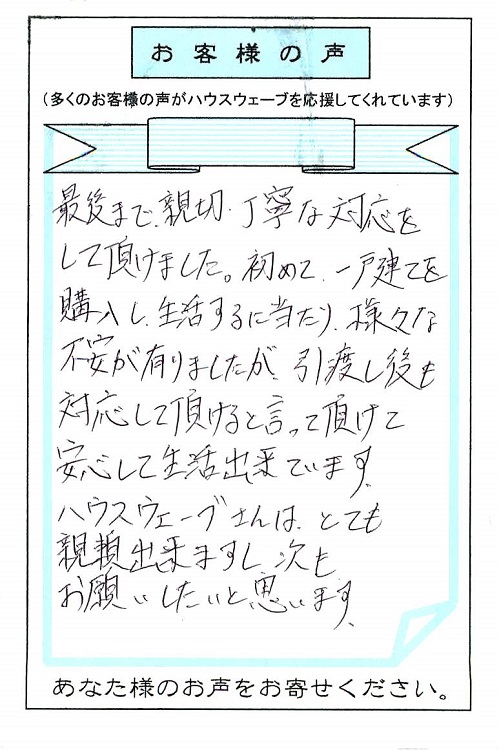 お客様の声
(多くのお客様の声がハウスウェーブを応援してくれています)
最後まで、親切・丁寧な対応を
して頂けました。初めて、一戸建てを
購入し、生活するに当たり、様々な
不安が有りましたが、引渡し後も
対応して頂けると言って頂けて
安心して生活出来ています。
ハウスウェーブさんは、とても
親頼出来ますし、次も
お願いしたいと思います。
あなた様のお声をお寄せください。